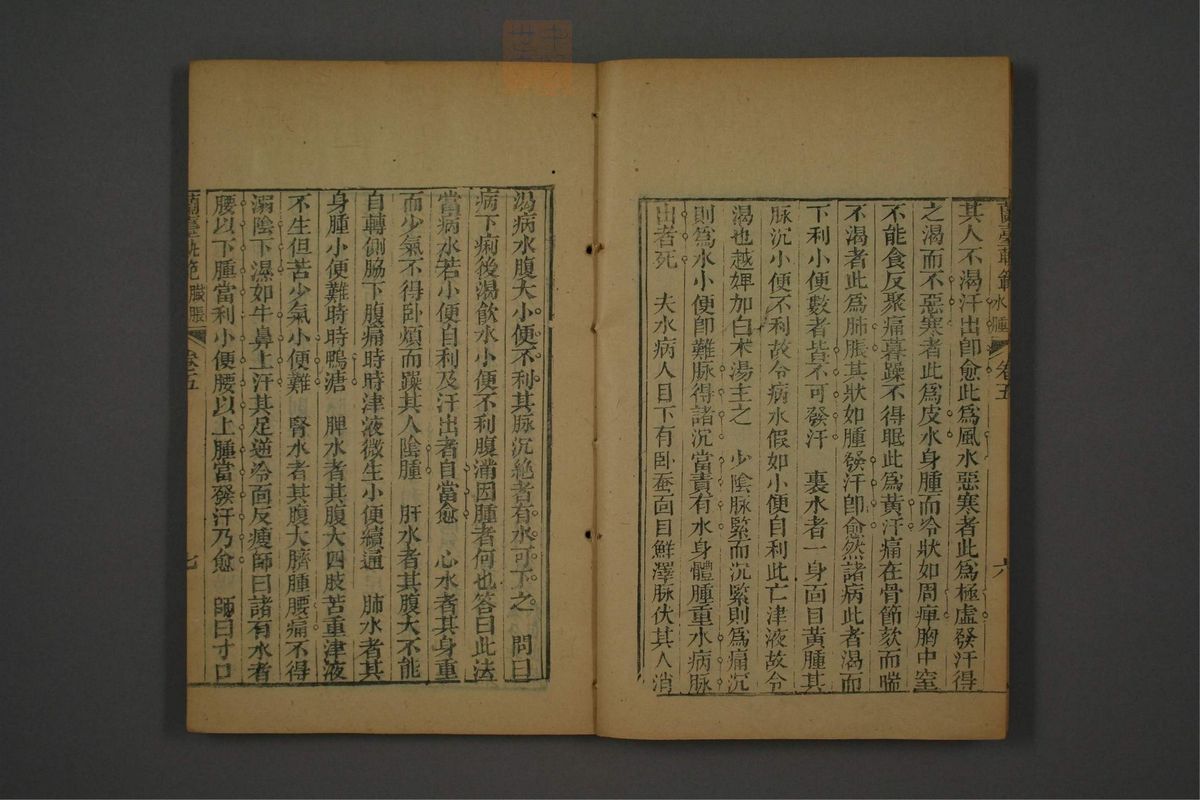 蘭臺軌範 水腫 卷五 六
其人不渴汗出卽愈此爲風水惡寒者此爲極虛發汗得
之渴而不惡寒者此爲皮水身腫而冷狀如周痺胸中窒
不能食反聚痛暮躁不得眠此爲黃汗痛在骨節欬而喘
不渴者此爲肺脹其狀如腫發汗卽愈然諸病此者渴而
下利小便數者皆不可發汗 裏水者一身面目黃腫其
脉沉小便不利故令病水假如小便自利此亡津液故令
渴也越婢加白术湯主之 少陰脉緊而沉緊則爲痛沉
則爲水小便卽難脉得諸沉當責有水身體腫重水病脉
出者死 夫水病人目下有卧蚕面目鮮澤脉伏其人消
渴病水腹大小便不利其脉沉絶者有水可下之 問曰
病下痢後渴飲水小便不利腹滿因腫者何也答曰此法
當病水若小便自利及汗出者自當愈 心水者其身重
而少氣不得卧煩而躁其人陰腫 肝水者其腹大不能
自轉側脇下腹痛時時津液微生小便續通 肺水者其
身腫小便難時時鴨溏 脾水者其腹大四肢苦重津液
不生但苦少氣小便難 腎水者其腹大臍腫腰痛不得
溺陰下濕如牛鼻上汗其足逆冷面反瘦師曰諸有水者
腰以下腫當利小便腰以上腫當發汗乃愈 師曰寸口
蘭臺軌範 脹 卷五 七